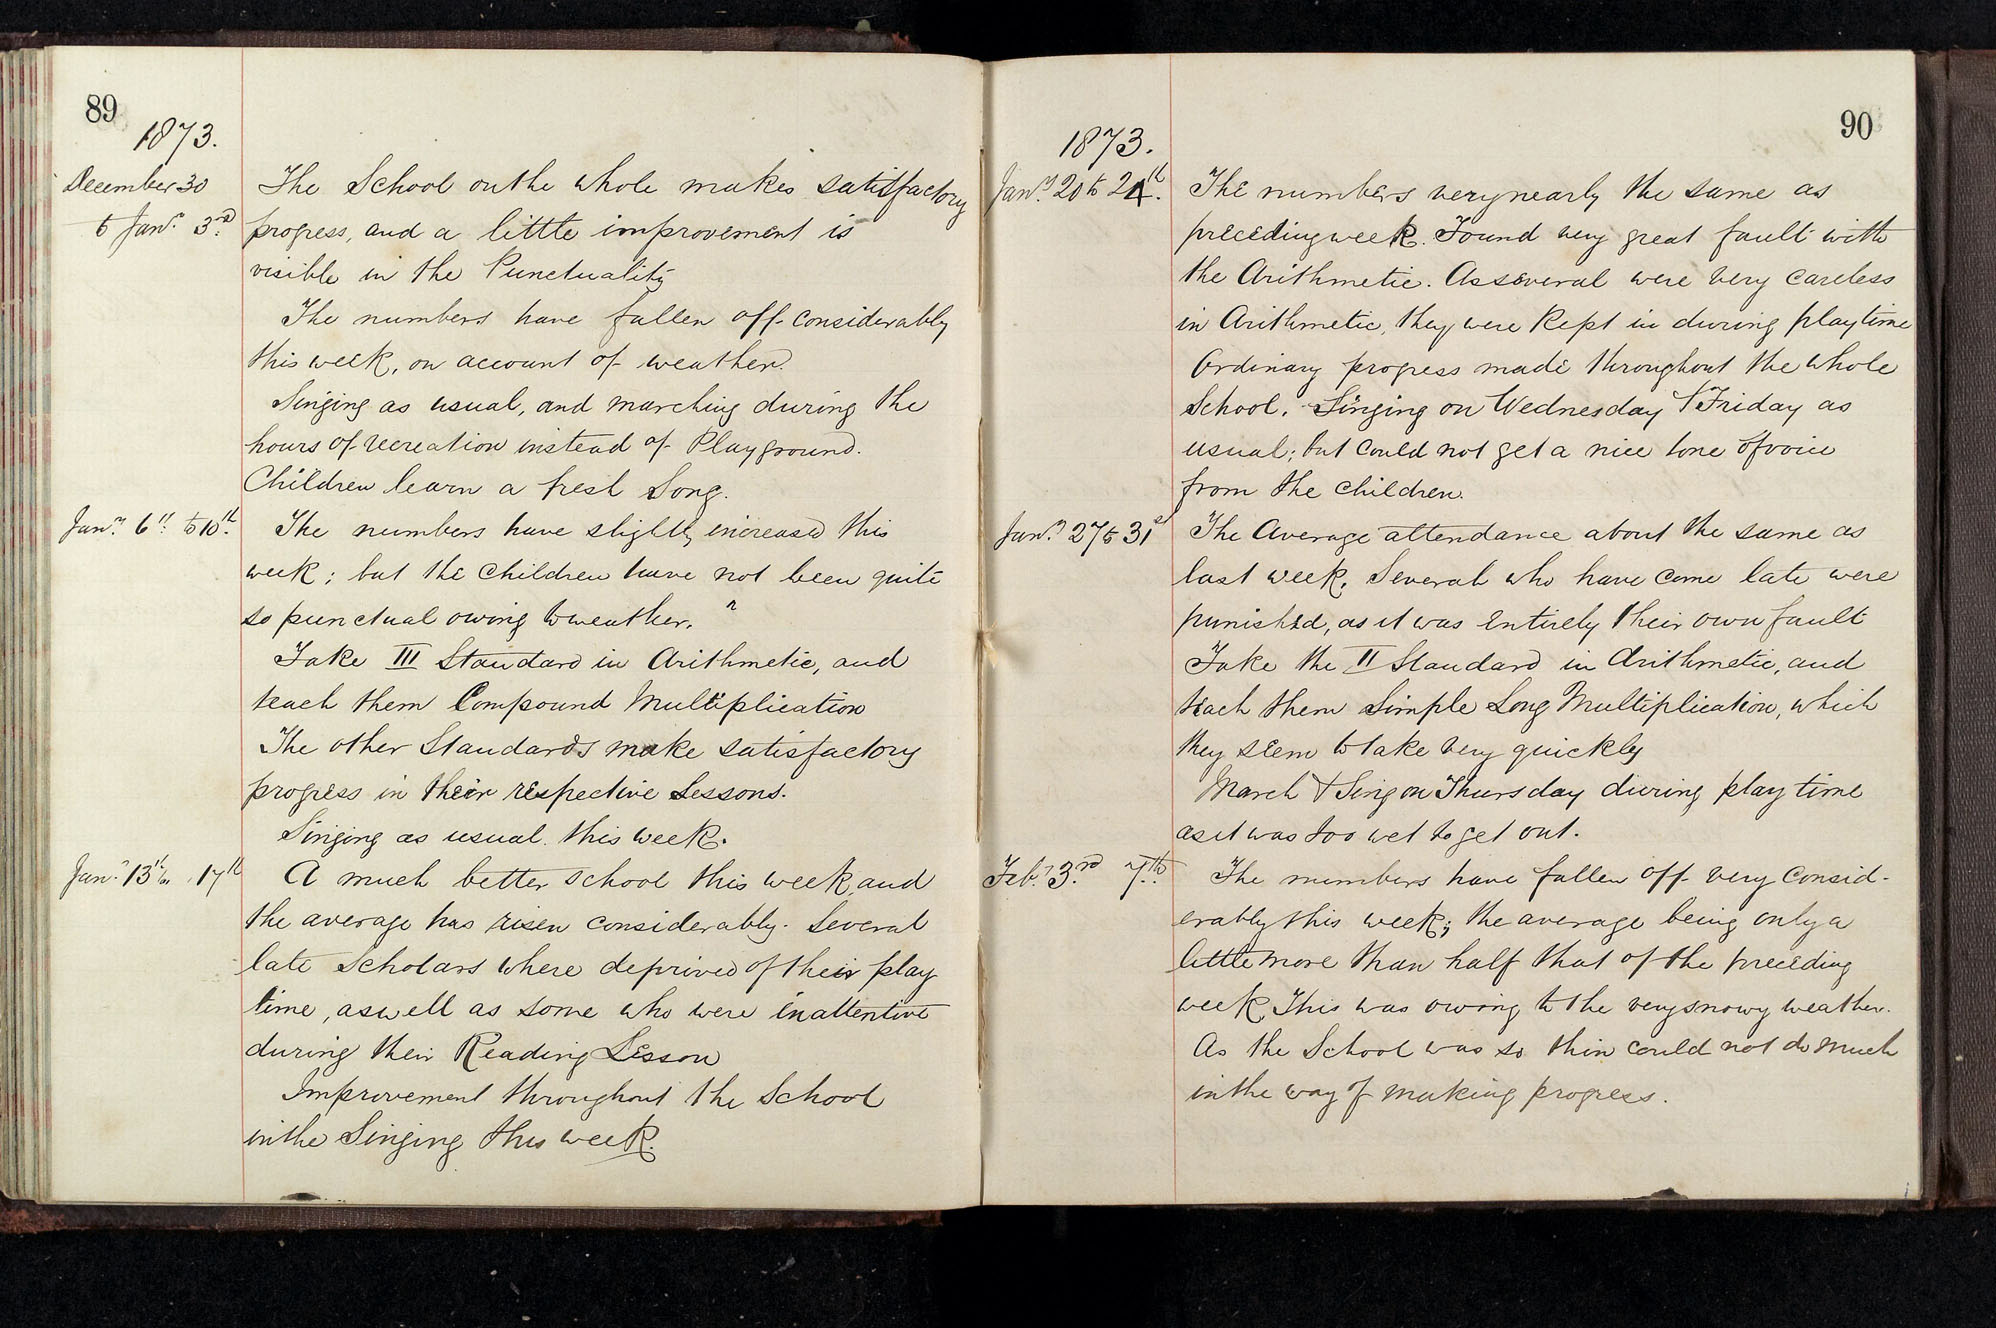 89
1873.
December 30
to Jany. 3rd.
The School on the whole makes satisfactory
progress, and a little improvement is
visible in the Punctuality
The numbers have fallen off considerably
this week, on account of weather.
Singing as usual, and marching during the
hours of recreation instead of Playground.
Children learn a fresh Song.
Jany. 6th to 10th.
The numbers have slightly increased this
week; but the children have not been quite
so punctual owing to weather.
Take III Standard in Arithmetic, and
teach them Compound Multiplication
The other Standards make satisfactory
progress in their respective Lessons.
Singing as usual this week.
Jany. 13th to 17th
A much better school this week, and
the average has risen considerably. Several
late scholars where deprived of their play
time, as well as some who were inattentive
during their Reading Lesson
Improvement throughout the School
in the Singing this week.
90
1873.
Jany. 20 to 24th.
The numbers very nearly the same as
preceding week. Found very great fault with
the Arithmetic. As several were very careless
in Arithmetic, they were kept in during playtime
Ordinary progress made throughout the whole
School. Singing on Wednesday & Friday as
usual; but could not get a nice tone of voice
from the children.
Jany. 27 to 31st
The Average attendance about the same as
last week. Several who have come late were
punished, as it was entirely their own fault
Take the II Standard in Arithmetic, and
teach them Simple Long Multiplication, which
they seem to take very quickly
March & Sing on Thursday during play time
as it was too wet to get out.
Feby. 3rd 7th.
The numbers have fallen off very consid-
erably this week; the average being only a
little more than half that of the preceding
week. This was owing to the very snowy weather.
As the School was so thin could not do much
in the way of making progress.